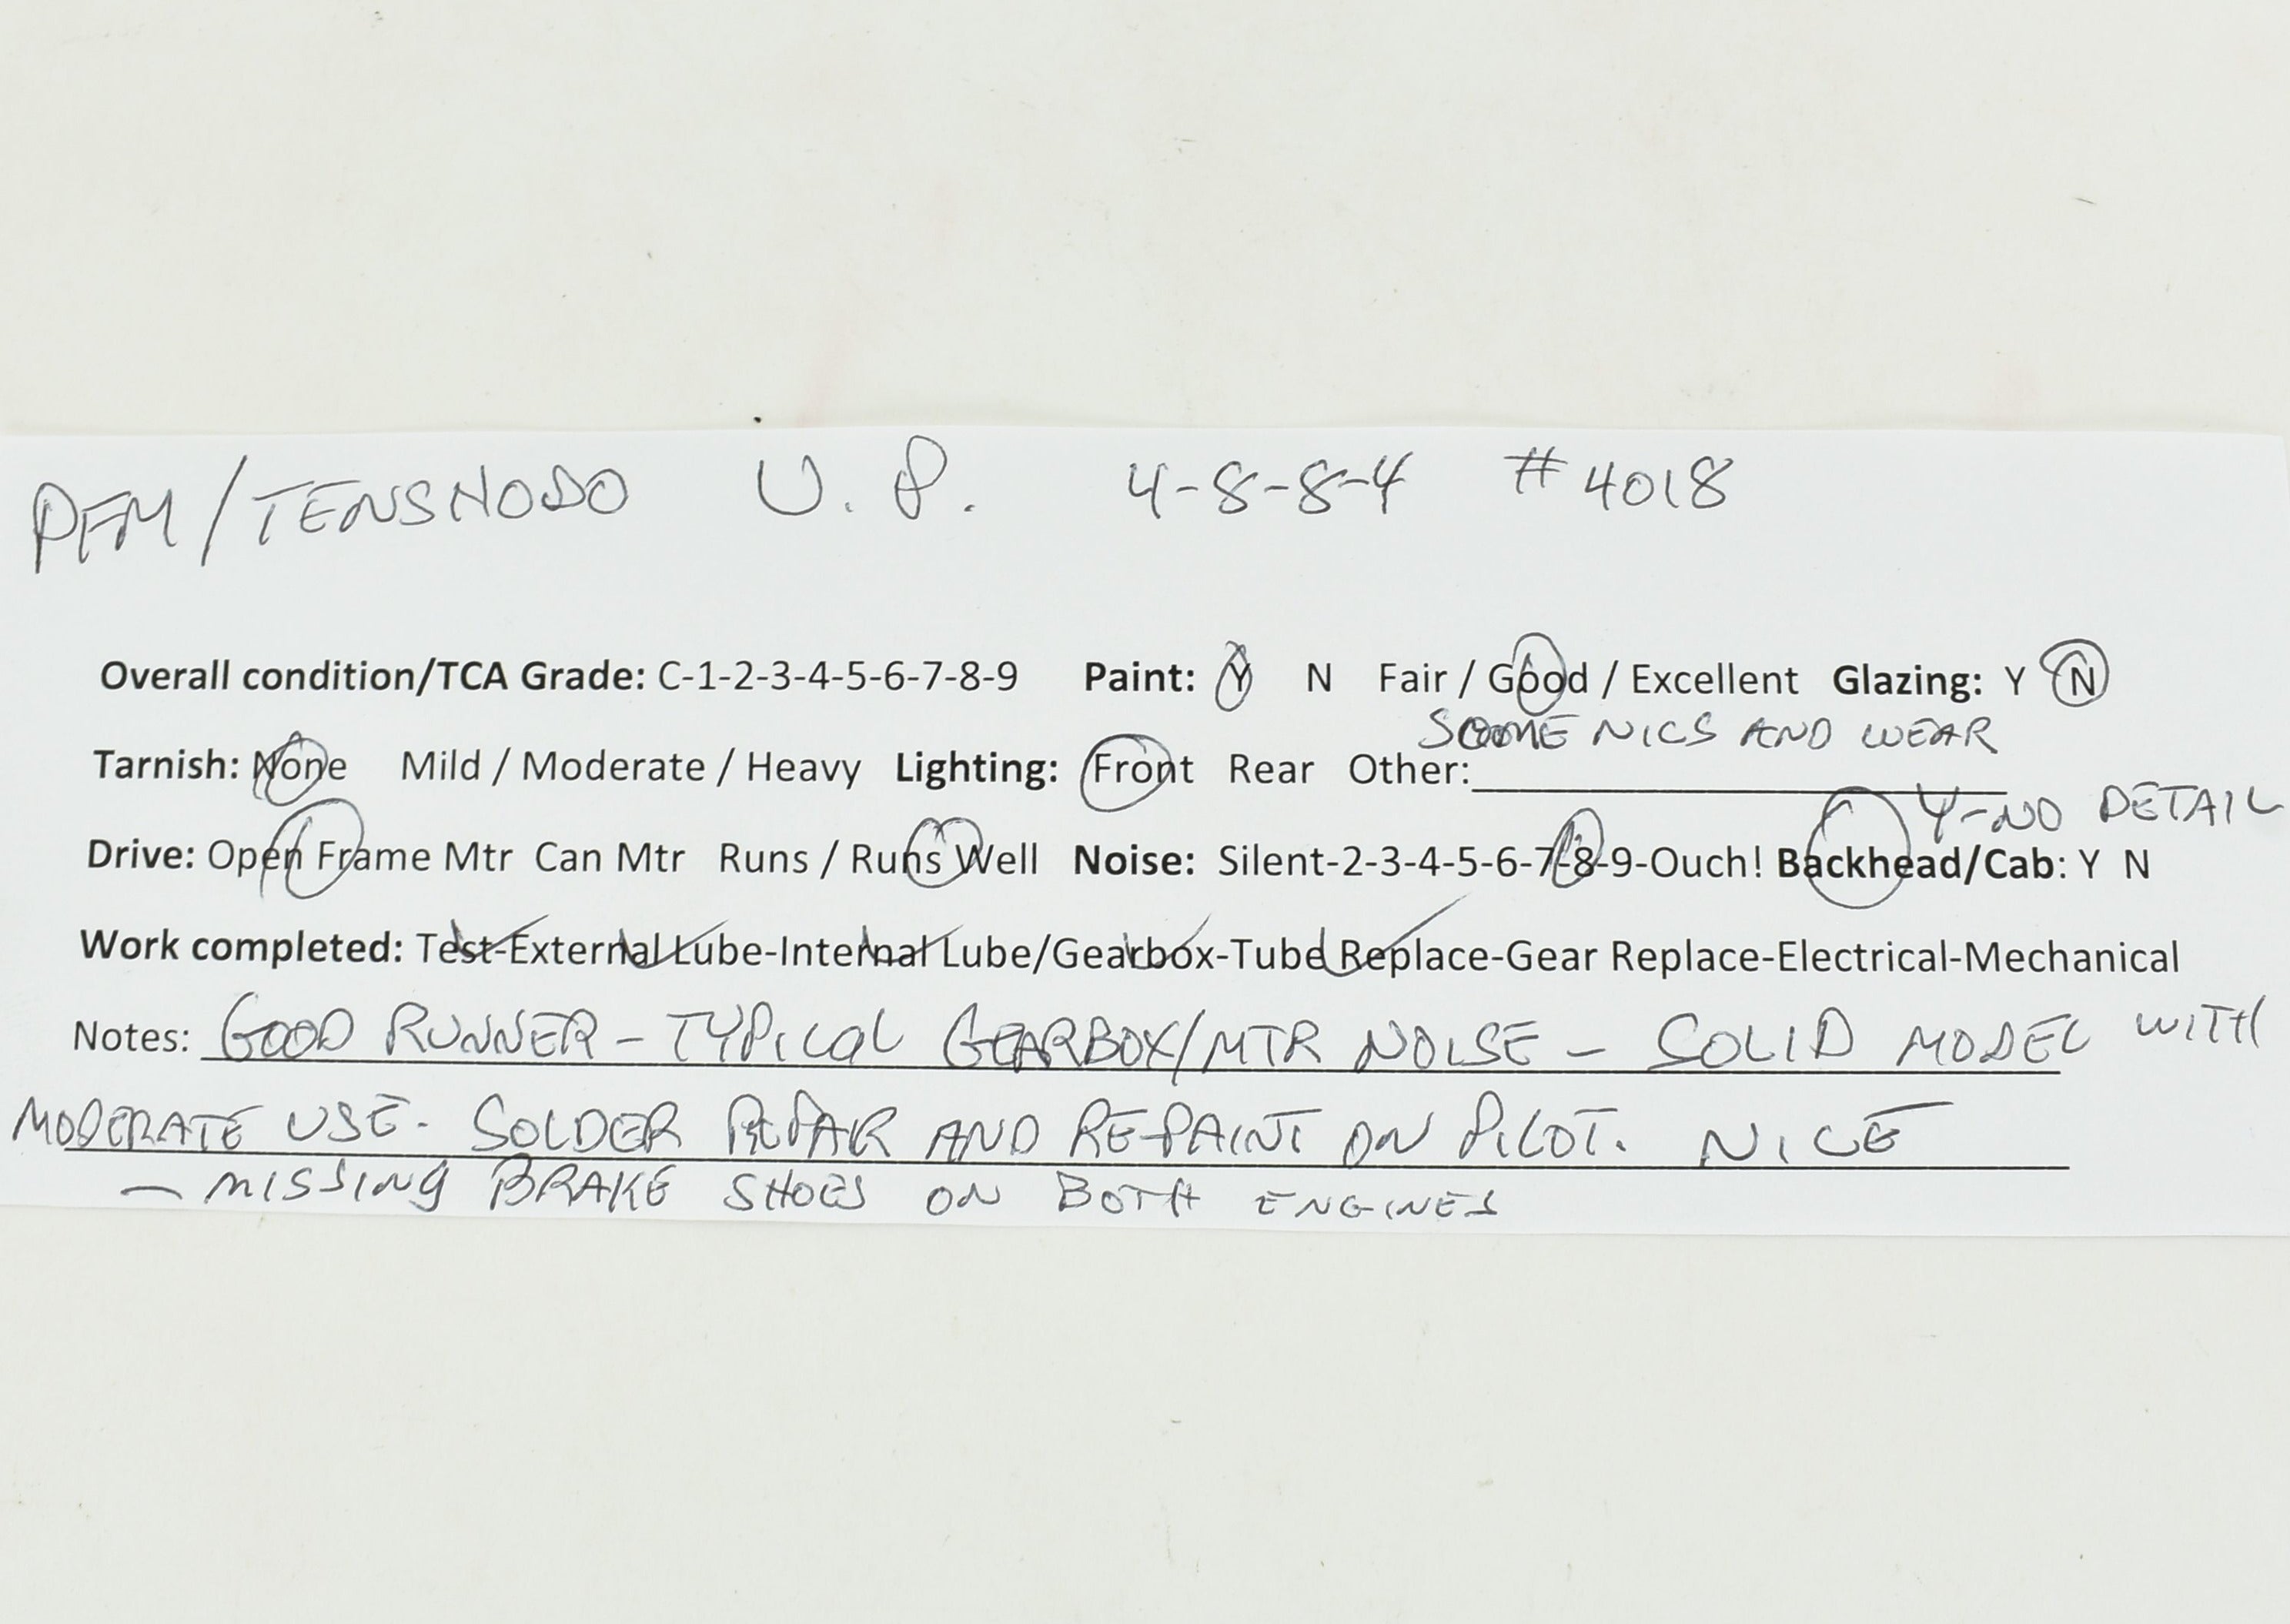 PFM/TENSHODO U.P. 4-8-8-4 #4018
Overall condition/TCA Grade: C-1-2-3-4-5-6-7-8-9 Paint: Y N Fair / Good / Excellent Glazing: Y N
SOME NICS AND WEAR
Tarnish: None Mild / Moderate / Heavy Lighting: Front Rear Other:
Y-NO DETAIL
Drive: Open Frame Mtr Can Mtr Runs / Runs Well Noise: Silent-2-3-4-5-6-7-8-9-Ouch! Backhead/Cab: Y N
Work completed: Test-External Lube-Internal Lube/Gearbox-Tube Replace-Gear Replace-Electrical-Mechanical
Notes: GOOD RUNNER - TYPICAL GEARBOX/MTR NOISE - SOLID MODEL WITH
MODERATE USE. SOLDER REPAIR AND RE-PAINT ON PILOT. NICE
- MISSING BRAKE SHOES ON BOTH ENGINES